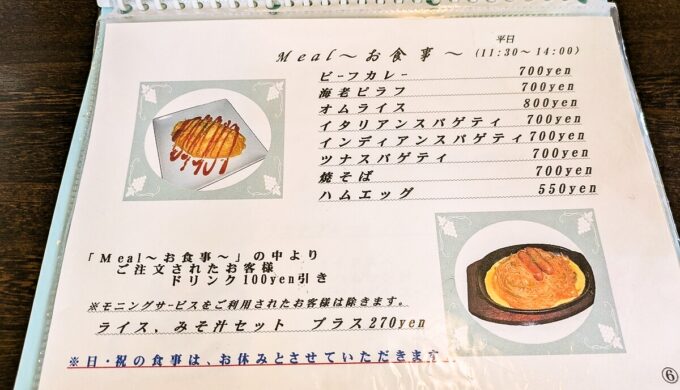 平日
Meal~お食事~ (11:30~14:00)
ビーフカレー 700yen
海老ピラフ 700yen
オムライス 800yen
イタリアンスパゲティ 700yen
インディアンスパゲティ 700yen
ツナスパゲティ 700yen
焼そば 700yen
ハムエッグ 550yen
「Meal~お食事~」の中より
ご注文されたお客様
ドリンク100yen引き
※モーニングサービスをご利用されたお客様は除きます。
ライス、みそ汁セット プラス270yen
※日・祝の食事は、お休みとさせていただきます。
⑥